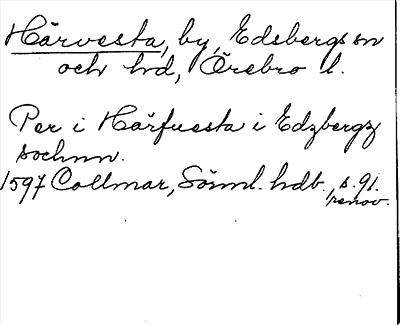 Härvesta, by, Edsbergs sn
och hd, Örebro l.
Per i Härfuesta i Edzbergz
sochnn.
1597 Collmar, Sörml. hdb., s. 91.
renov.